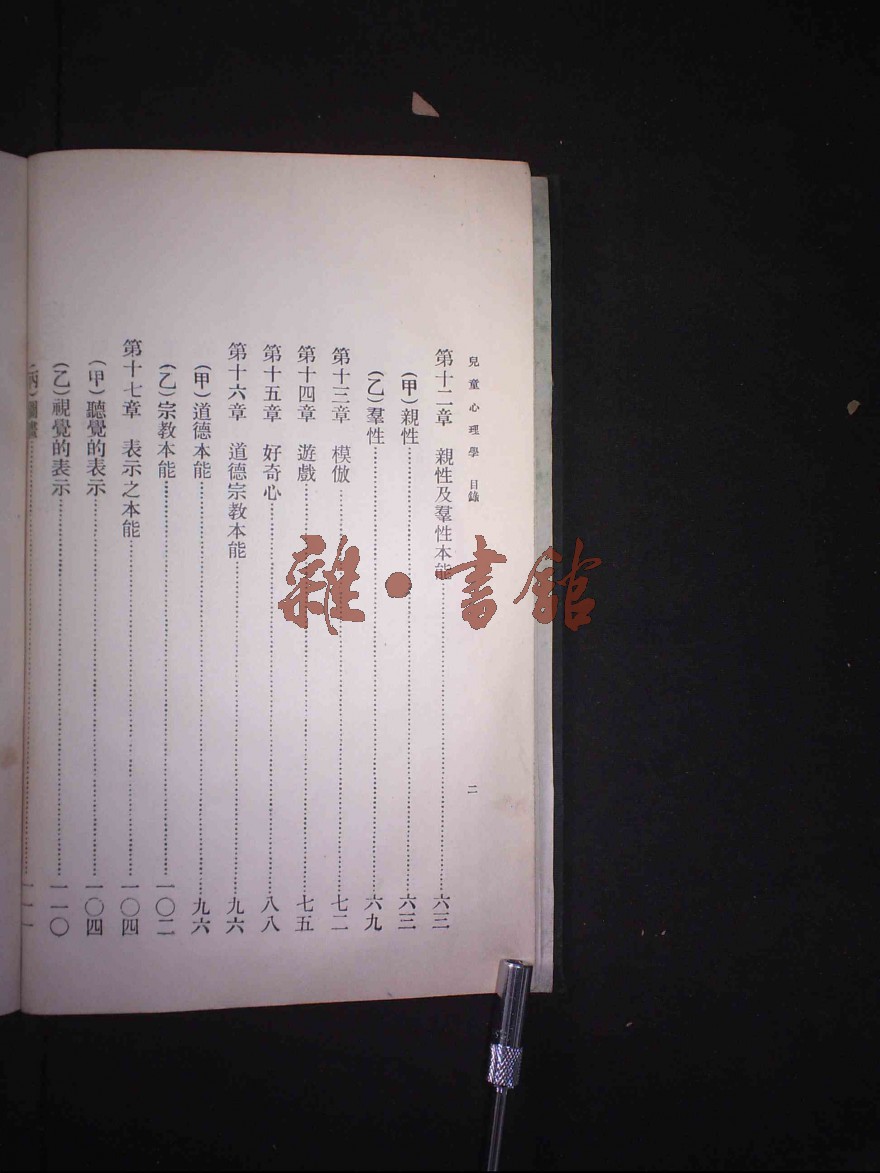 兒童心理學 目錄 二
第十二章 親性及羣性本能 六三
(甲)親性 六三
(乙)羣性 六九
第十三章 模倣 七二
第十四章 遊戲 七五
第十五章 好奇心 八八
第十六章 道德宗教本能 九六
(甲)道德本能 九六
(乙)宗教本能 一〇二
第十七章 表示之本能 一〇四
(甲)聽覺的表示 一〇四
(乙)視覺的表示 一一〇
(丙)圖畫 一一一
雜·書館